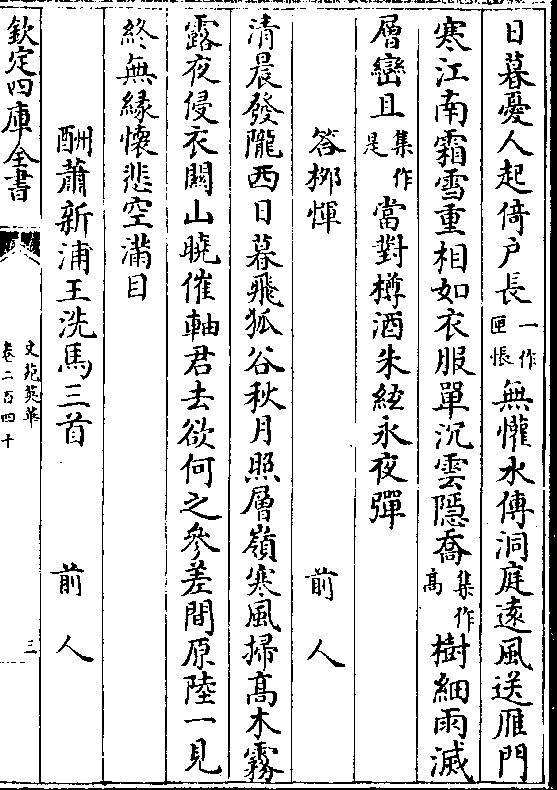 日暮憂人起倚户長一作匣悵無懽水傳洞庭遠風送雁門
寒江南霜雪重相如衣服單沉雲隠喬集作髙樹細雨滅
層巒且集作是當對樽酒朱絃永夜彈
答栁惲
前人
清晨發隴西日暮飛狐谷秋月照層嶺寒風掃髙木霧
露夜侵衣關山曉催軸君去欲何之參差間原陸一見
終無縁懐悲空滿目
酬蕭新浦王洗馬三首
前人
欽定四庫全書
文苑英華
卷二百四十
三